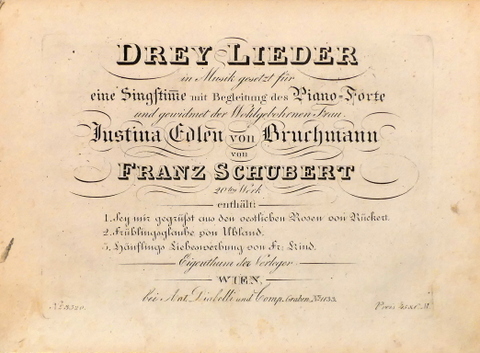 DREY LIEDER
in Musik gesetzt für
eine Singstim̄e mit Begleitung des Piano-Forte
und gewidmet der Wohlgebohrnen Frau
Justina Edlen von Bruchmann
von
FRANZ SCHUBERT
20tes Werk
enthält:
1. Sey mir gegrüsst aus den oestlichen Rosen von Rückert.
2. Frühlingsglaube von Uhland.
3. Hänflings Liebeswerbung von Fr: Kind.
Eigenthum der Verleger.
WIEN,
bei Ant. Diabelli und Comp. Graben, No. 1133.